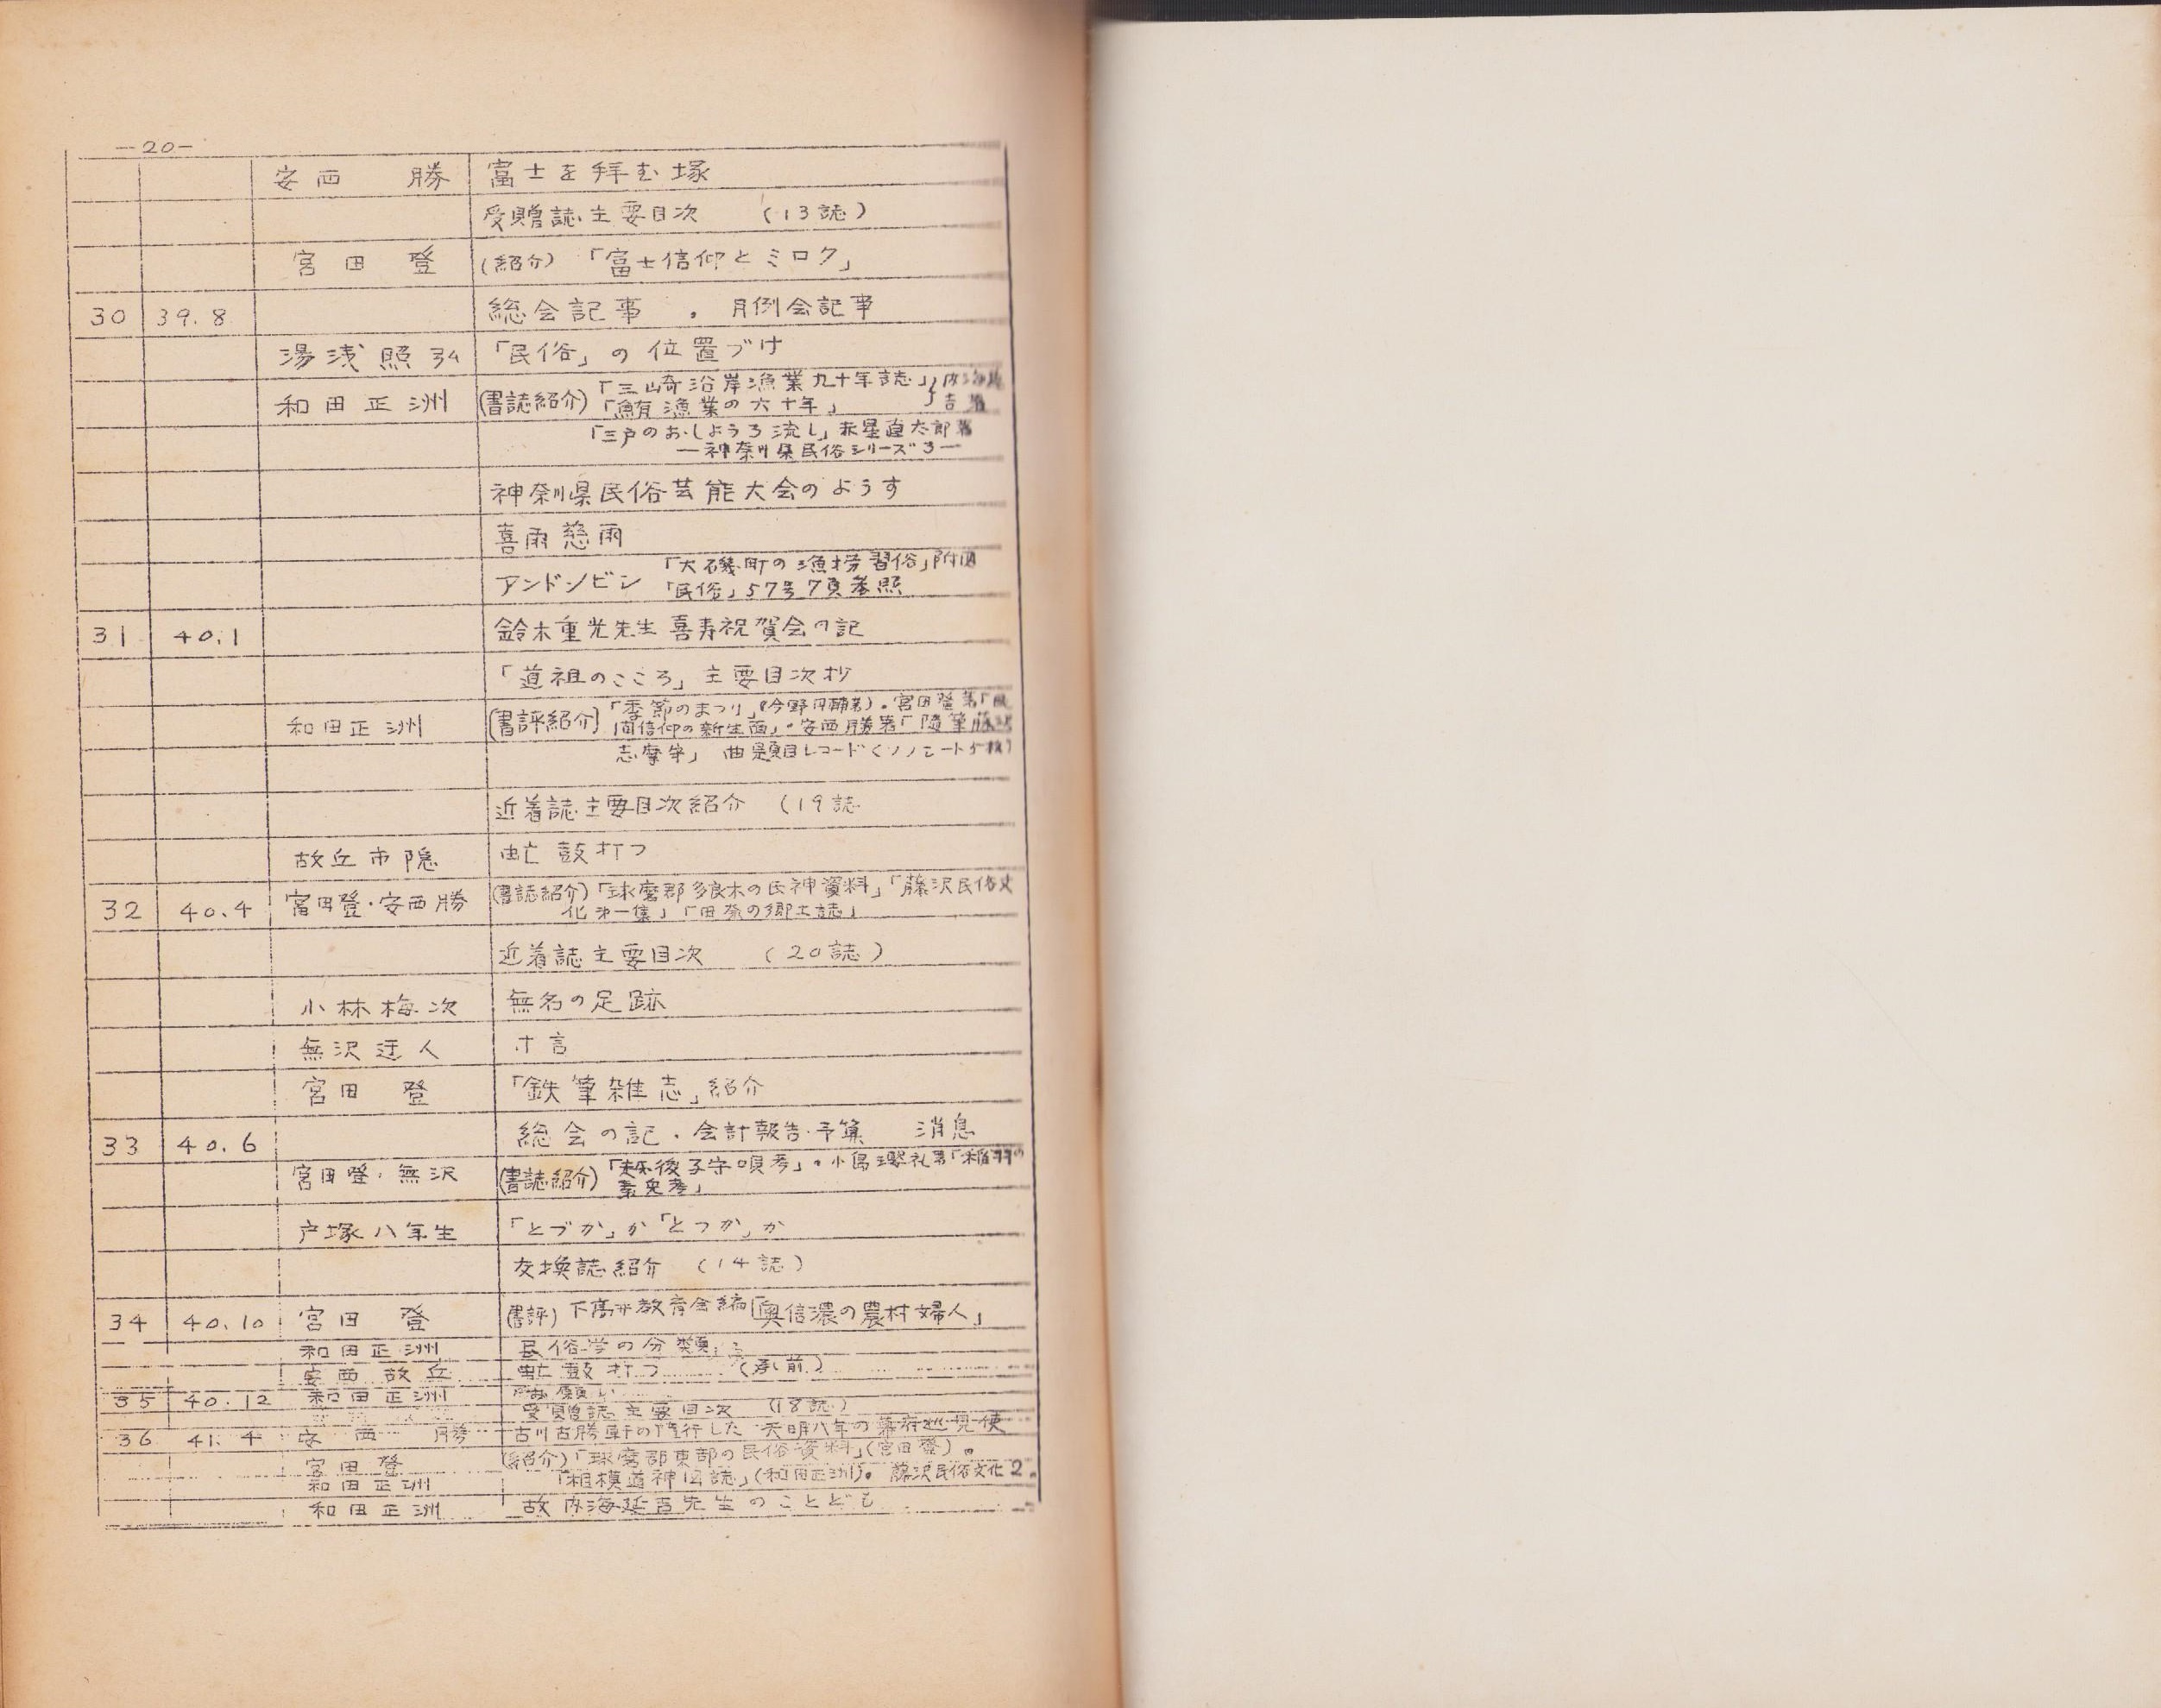 —20—
安西 勝 富士を拝む塚
受贈誌主要目次 (13誌)
宮田 登 (紹介) 「富士信仰とミロク」
30 39.8 総会記事 . 月例会記事
湯浅照弘 「民俗」の位置づけ
和田正洲 (書誌紹介) 「三崎沿岸漁業九十年誌」
「鮪漁業の六十年」
「三戸のおしょうろ流し」赤星直太郎著
—神奈川県民俗シリーズ3—
神奈川県民俗芸能大会のようす
喜雨慈雨
アンドンビン 「大磯町の漁撈習俗」附図
「民俗」57号7頁参照
31 40.1 鈴木重光先生喜寿祝賀会の記
「道祖のこころ」主要目次抄
和田正洲 (書評紹介) 「季節のまつり」(今野円輔著).宮田登著「民
間信仰の新生面」・安西勝著「随筆
志摩
曲題目レコード(ソノシート5枚)
近着誌主要目次紹介 (19誌
故丘市隠 虻鼓打つ
32 40.4 宮田登・安西勝 (書誌紹介)「球磨郡多良木の氏神資料」「藤沢民俗文
化第一集」「田奈の郷土誌」
近着誌主要目次 (20誌)
小林梅次 無名の足跡
無沢迂人 寸言
宮田 登 「鉄筆雑志」紹介
33 40.6 総会の記.会計報告・予算 消息
宮田登・無沢 (書誌紹介) 子守唄考」・小島瓔礼著「稲羽の
素兎考」
戸塚八年生 「とづか」か「とつか」か
交換誌紹介 (14誌)
34 40.10 宮田 登 (書評) 下高井教育会編「奥信濃の農村婦人」
和田正洲 民俗学の分類
安西故丘 虻鼓打つ (承前)
35 40.12 和田正洲 お願い
受贈誌主要目次 (18誌)
36 41.4 安西 勝 古川古勝軒の随行した天明八年の幕府巡見使
宮田登 (紹介)「球磨郡東部の民俗資料」(宮田登)。
和田正洲 「相模道神図誌」(和田正洲)。藤沢民俗文化2.
和田正洲 故内海延吉先生のことども